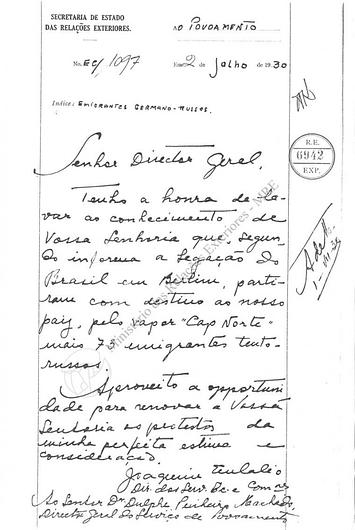 SECRETARIA DE ESTADO
DAS RELAÇÕES EXTERIORES.
AO POVOAMENTO
No. EC/1097
Em 2 de Julho de 1930
Indice: EMIGRANTES GERMANO-RUSSOS.
R.E.
6942
EXP.
Senhor Director Geral,
Tenho a honra de le-
var ao conhecimento de
Vossa Senhoria que, segun-
do informa a Legação do
Brasil em Berlim, parti-
ram com destino ao nosso
paiz, pelo vapor "Cap Norte"
mais 73 emigrantes teuto-
russos.
Aproveito a opportuni
dade para renovar a Vossa
Senhoria os protestos da
minha perfeita estima e
consideração.
Joaquim Eulalio
Dir. dos Serv. Ec. e Com.
Ao Senhor Dr. Dulphe Pinheiro Machado,
Director Geral do Serviço de Povoamento
Ministério das Relações Exteriores MRE